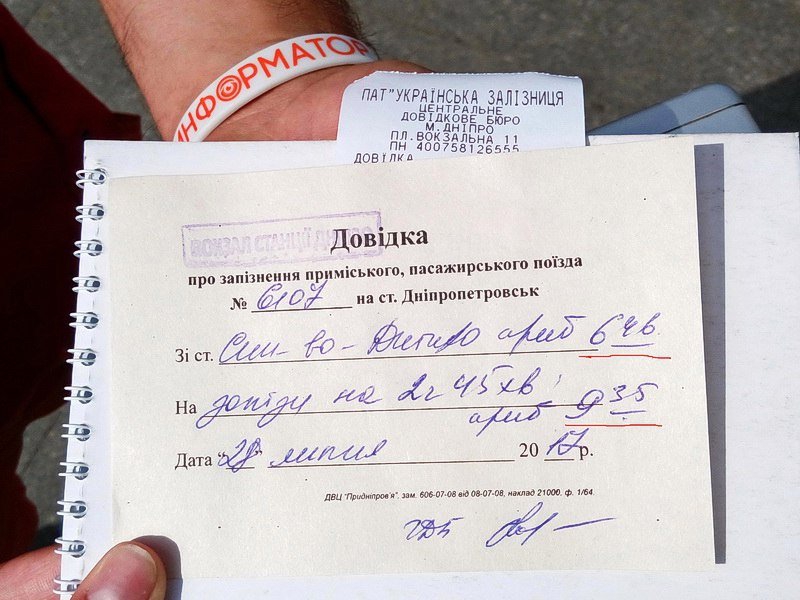 ИНФОРМАТОР
ПАТ"УКРАЇНСЬКА ЗАЛІЗНИЦЯ
ЦЕНТРАЛЬНЕ
ДОВІДКОВЕ БЮРО
М.ДНІПРО
ПЛ.ВОКЗАЛЬНА 11
ПН 400758126555
ДОВІДКА
ВОКЗАЛ СТАНЦІЇ
Довідка
про запізнення приміського, пасажирського поїзда
№ 6107 на ст. Дніпропетровськ
Зі ст. Син-во-Дніпро приб 6
На запізн на 2г 45хв
приб 9 35
Дата "28" липня 20 17 р.
ДВЦ "Придніпров'я", зам. 606-07-08 від 08-07-08, наклад 21000, ф. 1/64.